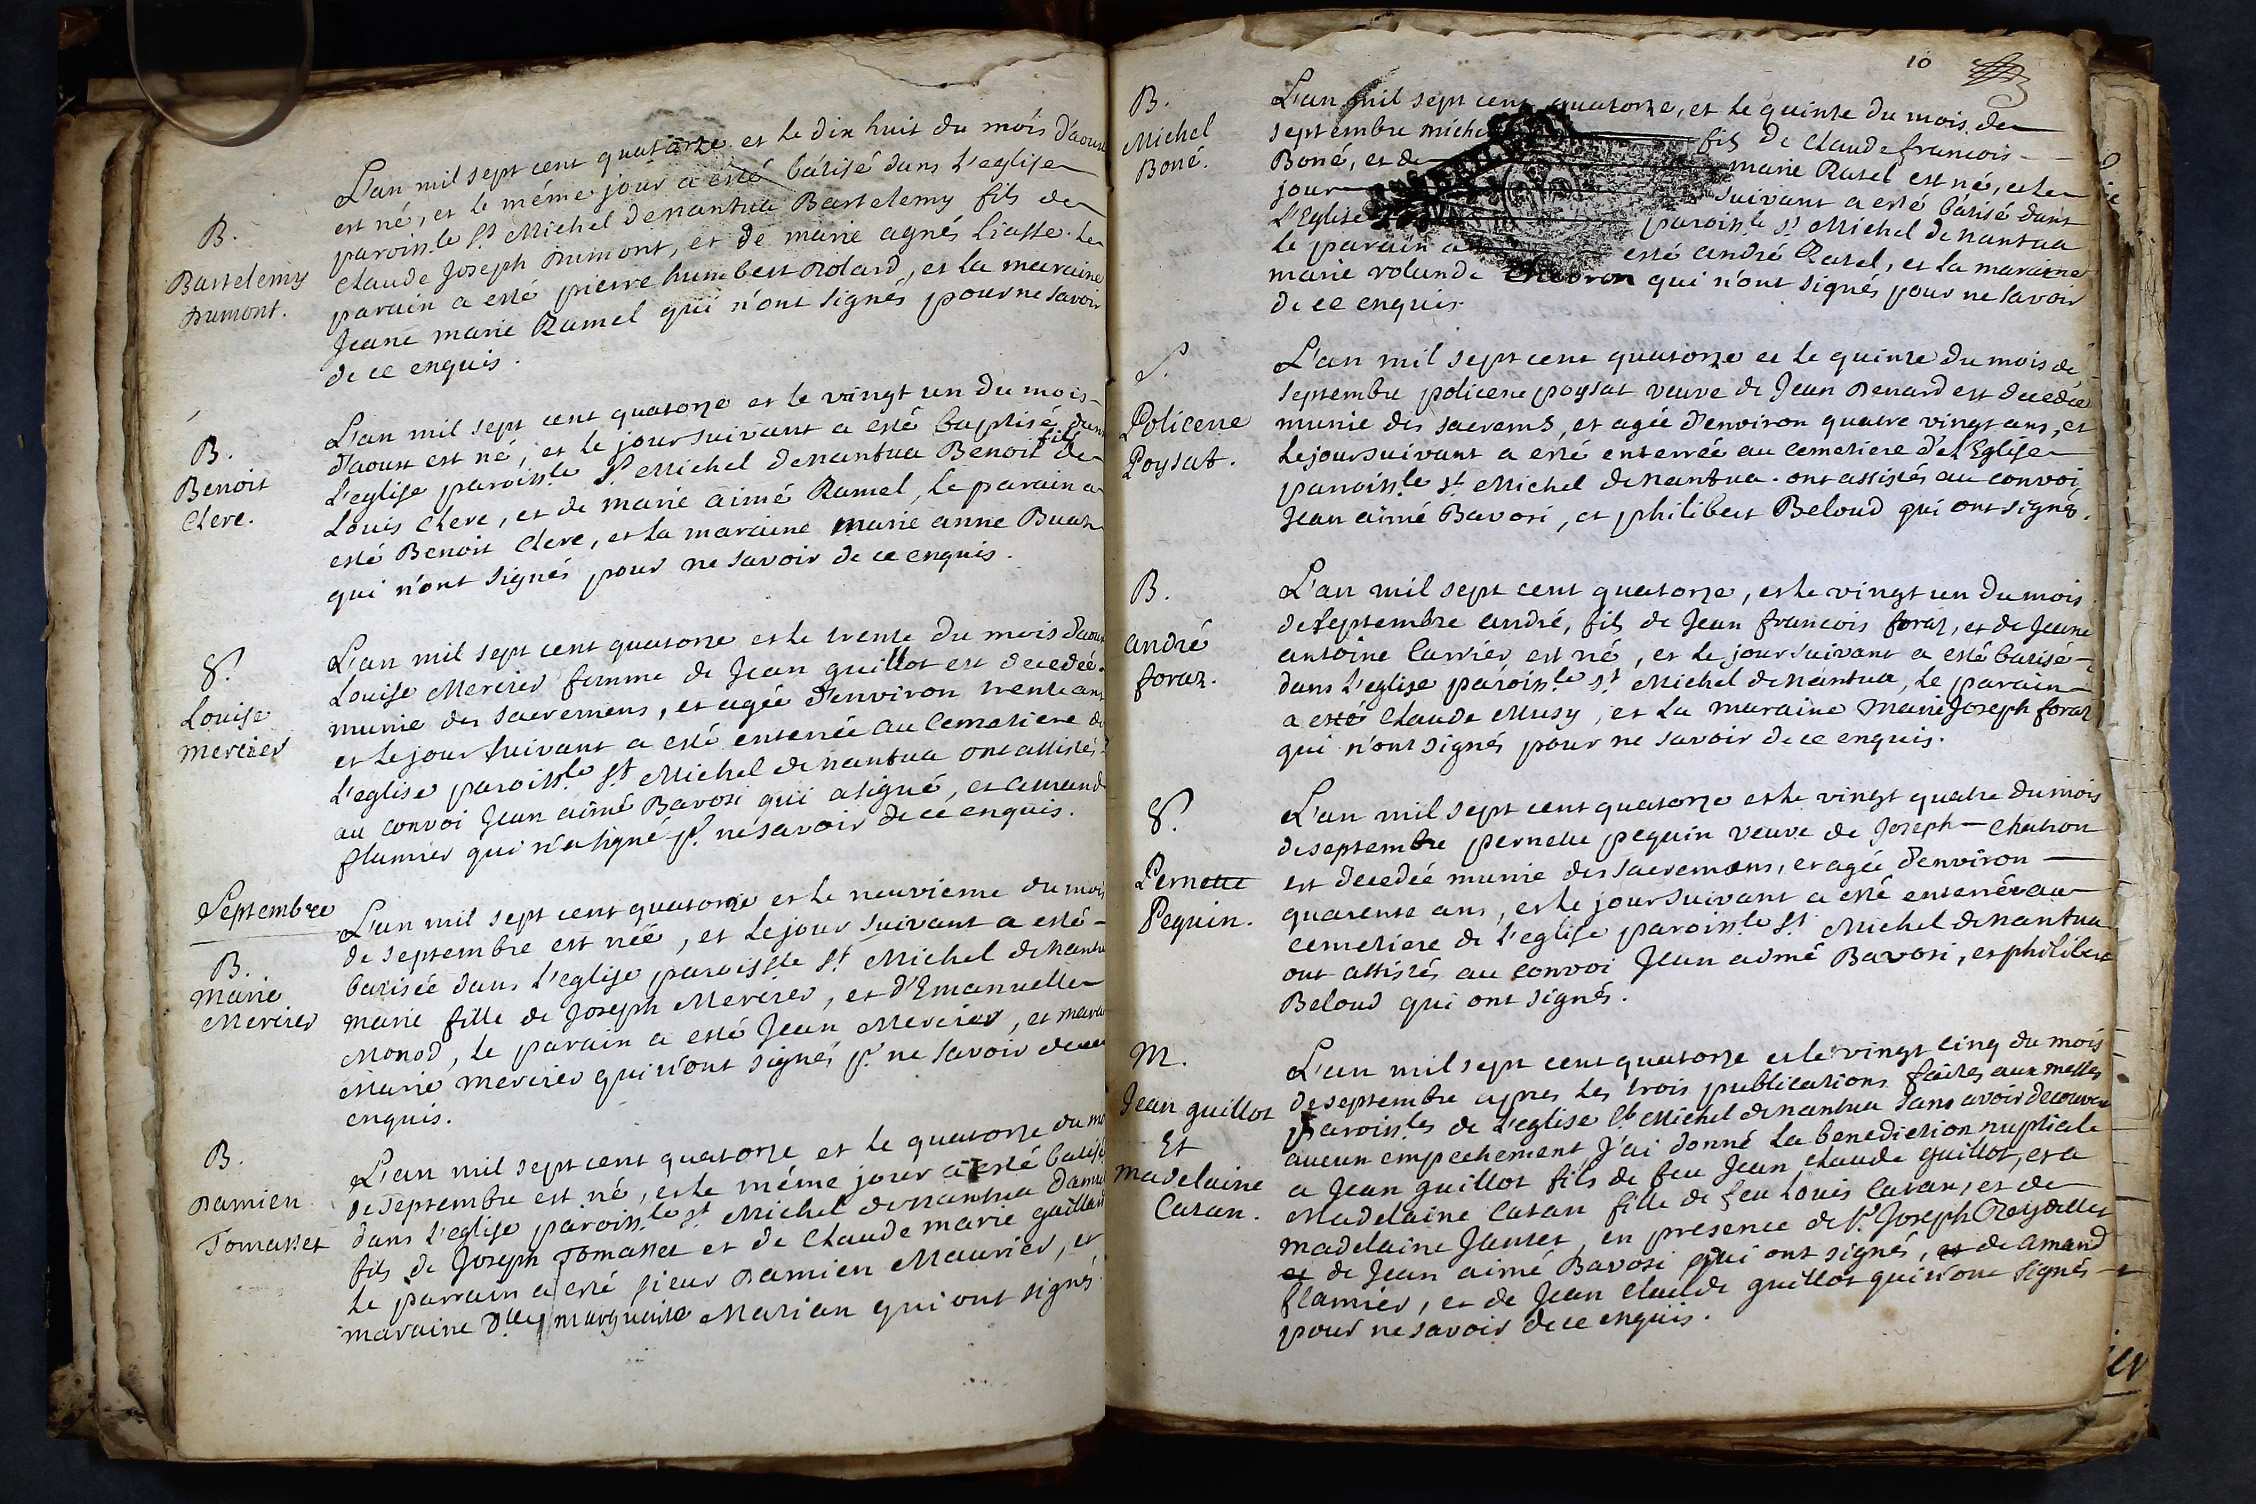 B.
Bartelemy
Dumont.
L'an mil sept cent quatorze et le dix huit du mois d'aoust
est né, et le même jour a esté batisé dans l'eglise
paroiss.le S.t Michel de nantua Bartelemy fils de
Claude Joseph Dumont, et de marie agnés Liasse. Le
parain a esté pierre humbert Rolard, et la maraine
Jeane marie Ramel qui n'ont signés pour ne savoir
de ce enquis.
B.
Benoit
Clere.
L'an mil sept cent quatorze et le vingt un du mois
d'aoust est né, et le jour suivant a esté baptisé dans
L'eglise paroiss.le S.t Michel de nantua Benoit fils de
Louis Clere, et de marie aimé Ramel, Le parain a
esté Benoit Clere, et la maraine marie anne Buat
qui n'ont signés pour ne savoir de ce enquis.
S.
Louise
mercier
L'an mil sept cent quatorze et le trente du mois d'aoust
Louise Mercier femme de Jean guillot est decedée
munie des sacremens, et agée d'environ trente ans
et le jour suivant a esté enterrée au Cemetiere de
L'eglise paroiss.le S.t Michel de nantua ont assistés
au convoi Jean aimé Bavosi qui a signé, et amand
flamier qui n'a signé p.r ne savoir de ce enquis.
Septembre
B.
Marie
Mercier
L'an mil sept cent quatorze et le neuvieme du mois
de septembre est née, et le jour suivant a esté
batisée dans l'eglise paroissle S.t Michel de Nantua
marie fille de Joseph Mercier, et d'Emanuelle
Monod, le parain a esté Jean Mercier, et mara
Marie mercier qui n'ont signés p.r ne savoir de ce
enquis.
B.
Damien
Tomasset
L'an mil sept cent quatorze et le quatorze du mo
de septembre est né, et le même jour a esté batisé
dans l'eglise paroiss.le S.t Michel de nantua Damie
fils de Joseph Tomasset et de Claude marie guilland
Le parrain a esté sieur Damien Maurier, et
maraine d.lle marguerite Marian qui ont signés
10
B.
Michel
Boné.
L'an mil sept cent quatorze, et le quinze du mois de
septembre miche fils de Claude francois
Boné, et de marie Ratel est né, et le
jour suivant a esté batisé dans
L'Eglise paroiss.le S.t Michel de nantua
le parain a esté andré Ratel, et la maraine
marie rolande Chavron qui n'ont signés pour ne savoir
de ce enquis.
S.
Policene
Poysat.
L'an mil sept cent quatorze et le quinze du mois de
septembre policene poysat veuve de Jean Denard est decedée
munie des sacrems, et agée d'environ quatre vingt ans, et
le jour suivant a esté enterrée au cemetiere de l'Eglise
parroiss.le S.t Michel de nantua. ont assistés au convoi
Jean aimé Bavosi, et philibert Beloud qui ont signés.
B.
andré
foraz.
L'an mil sept cent quatorze, et le vingt un du mois
de septembre andré, fils de Jean francois foraz, et de Jeane
antoine Carrier est né, et le jour suivant a esté batisé
dans l'eglise paroiss.le S.t Michel de nantua, Le parain
a esté Claude Musy, et la maraine Marie Joseph foraz
qui n'ont signés pour ne savoir de ce enquis.
S.
Pernette
Pequin.
L'an mil sept cent quatorze et le vingt quatre du mois
de septembre pernette pequin veuve de Joseph Chatron
est decedée munie des sacremens, et agée d'environ
quarente ans, et le jour suivant a esté enterrée au
cemetiere de l'eglise paroiss.le S.t Michel de nantua
ont assistés au convoi Jean aimé Bavosi, et philibert
Beloud qui ont signés.
M.
Jean guillot
Et
Madelaine
Catan.
L'an mil sept cent quatorze et le vingt cinq du mois
de septembre apres les trois publications faites aux messes
paroiss.les de l'eglise S.t Michel de nantua sans avoir decouvert
aucun empechement J'ai donné la benediction nuptiale
a Jean guillot fils de feu Jean claude guillot, et a
Madelaine Catan fille de feu Louis Catan, et de
madelaine Jantet, en presence de S.r Joseph Reydellet
et de Jean aimé Bavosi qui ont signés, et de amand
flamier, et de Jean Claude guillot qui n'ont signés
pour ne savoir de ce enquis.